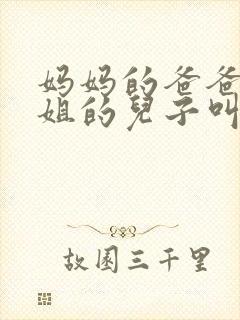 妈妈的爸爸
姐的兒子叫
故園三千里